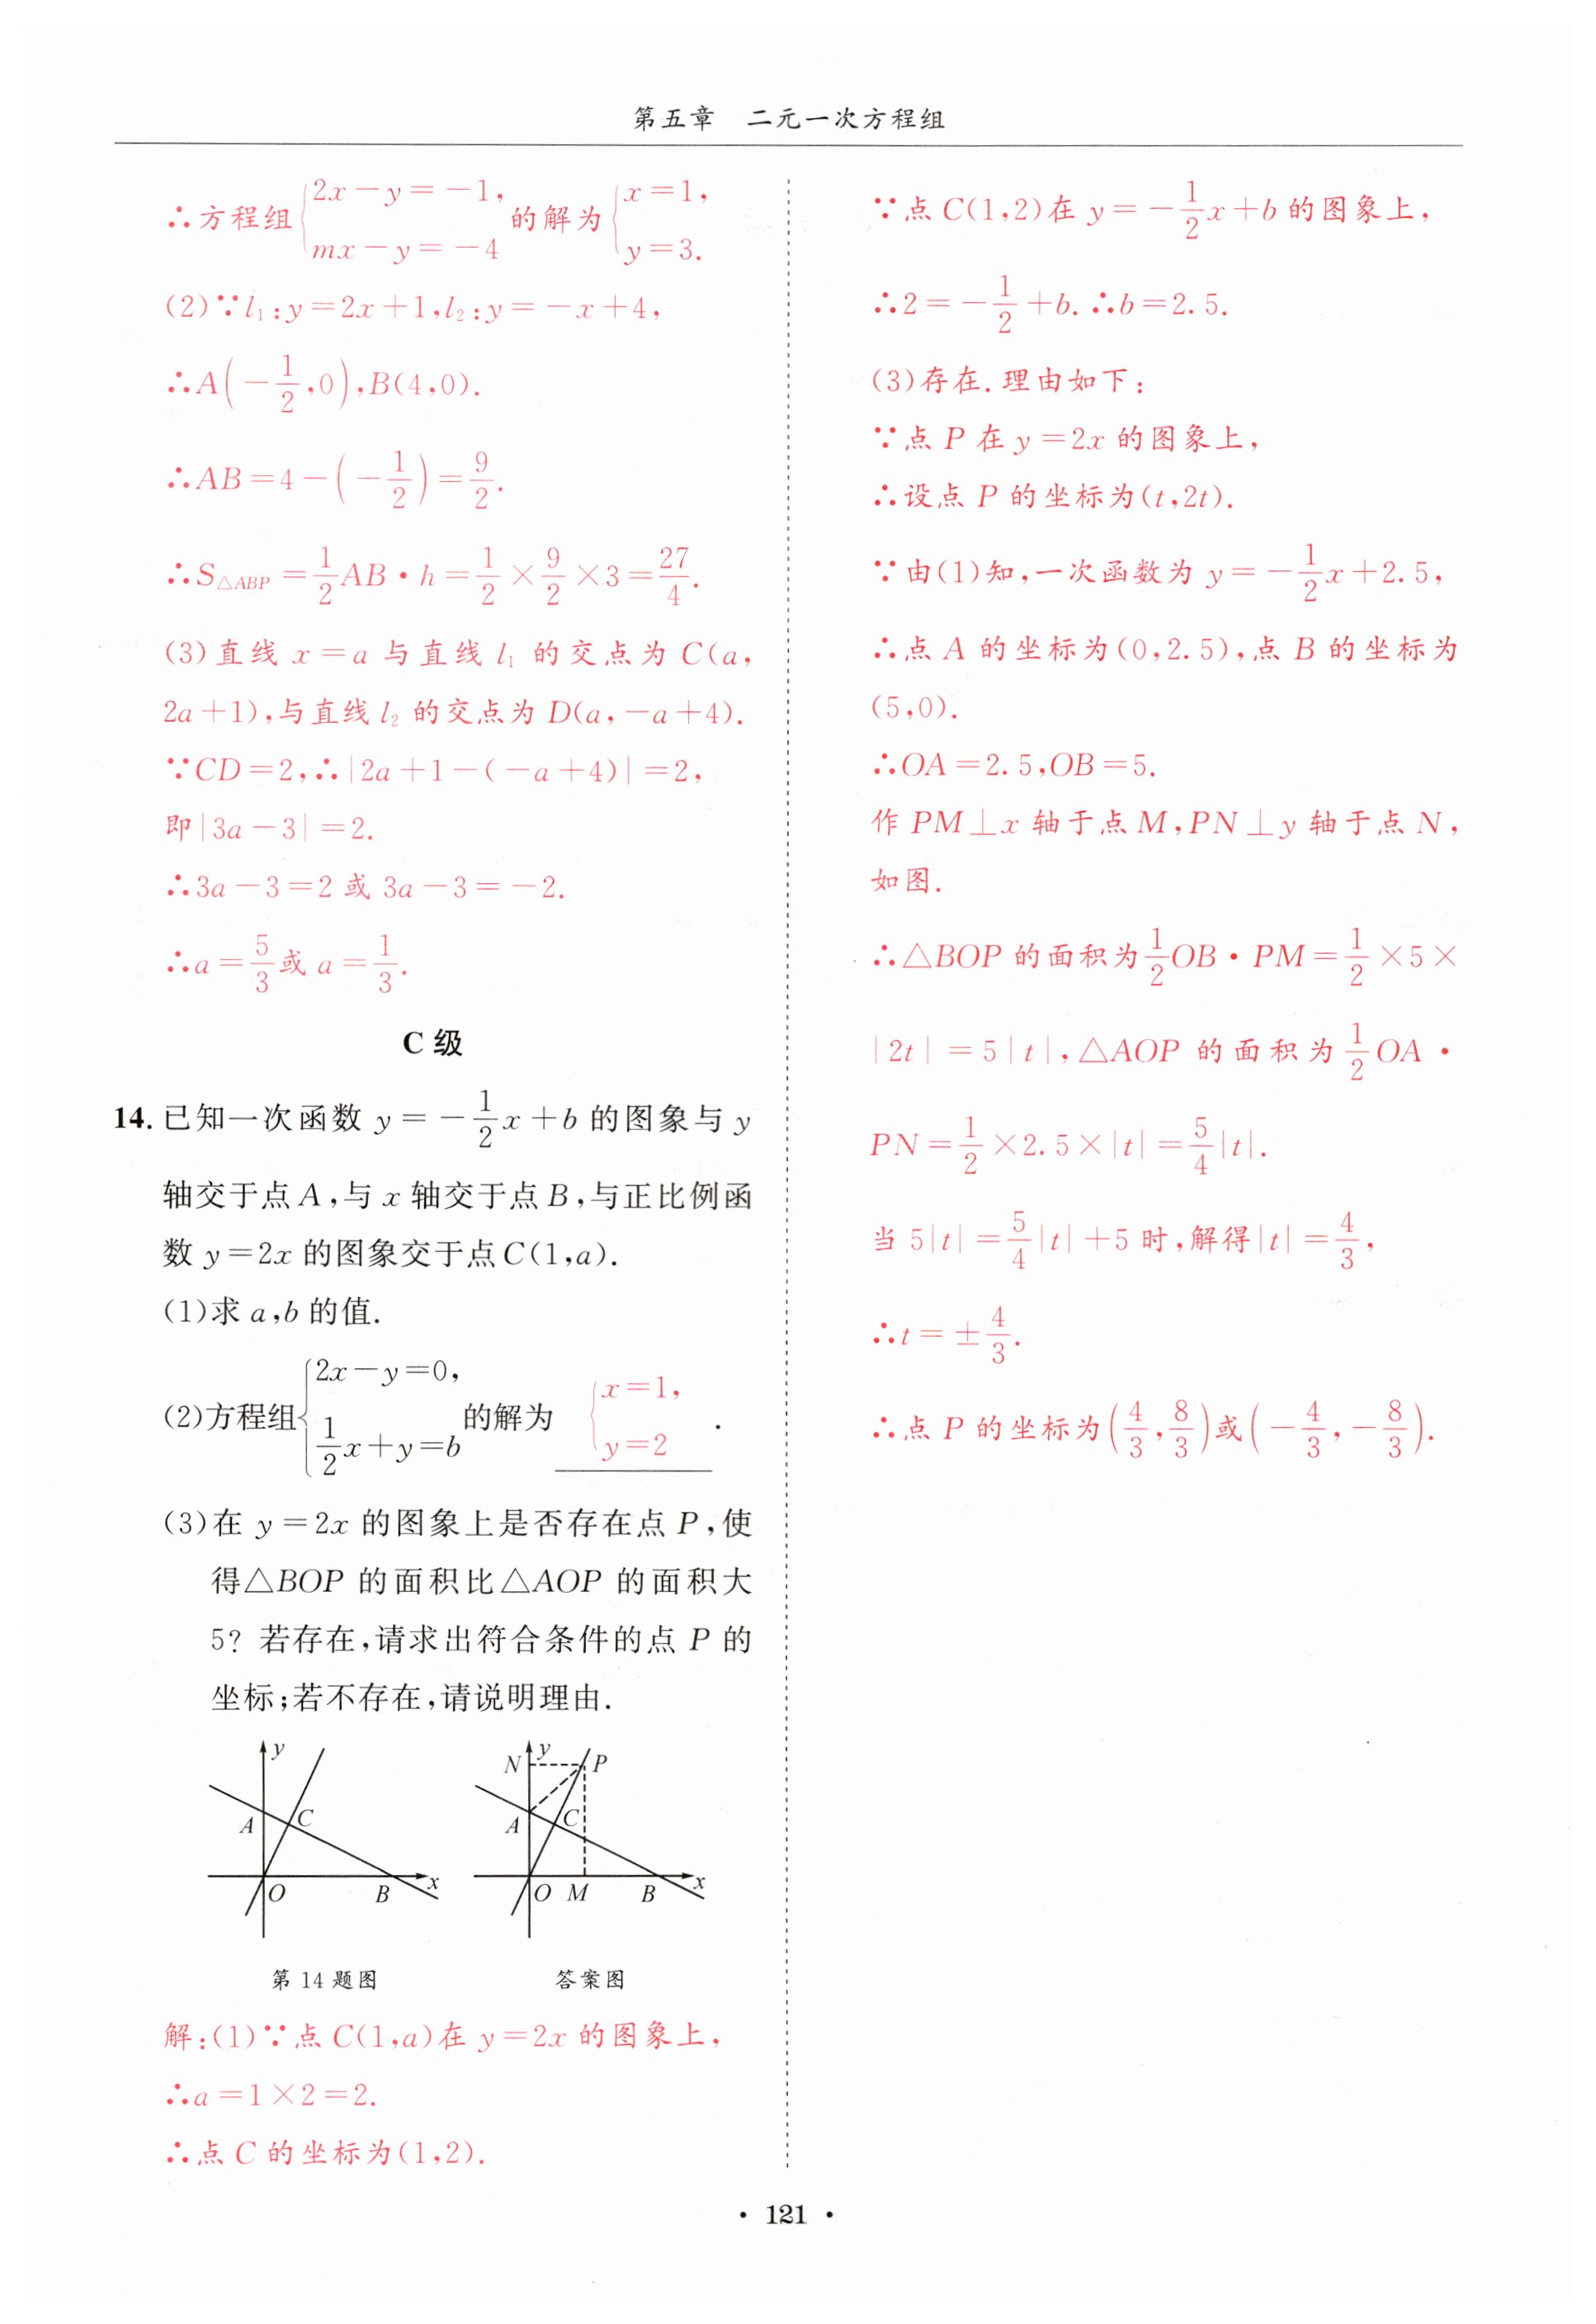 第五章 二元一次方程组
∴方程组{2x-y=-1, mx-y=-4 的解为{x=1, y=3.
(2)∵l₁:y=2x+1,l₂:y=-x+4,
∴A(-1/2,0),B(4,0).
∴AB=4-(-1/2)=9/2.
∴S△ABP=1/2AB·h=1/2×9/2×3=27/4.
(3)直线 x=a 与直线 l₁ 的交点为 C(a,
2a+1),与直线 l₂ 的交点为 D(a,-a+4).
∵CD=2,∴|2a+1-(-a+4)|=2,
即|3a-3|=2.
∴3a-3=2 或 3a-3=-2.
∴a=5/3或 a=1/3.
C 级
14. 已知一次函数 y=-1/2x+b 的图象与 y
轴交于点 A,与 x 轴交于点 B,与正比例函
数 y=2x 的图象交于点 C(1,a).
(1)求 a,b 的值.
(2)方程组{2x-y=0, 1/2x+y=b 的解为 {x=1, y=2 .
(3)在 y=2x 的图象上是否存在点 P,使
得△BOP 的面积比△AOP 的面积大
5? 若存在,请求出符合条件的点 P 的
坐标;若不存在,请说明理由.
y
A
C
O
B
x
第 14 题图
N
y
P
A
C
O
M
B
x
答案图
解:(1)∵点 C(1,a)在 y=2x 的图象上,
∴a=1×2=2.
∴点 C 的坐标为(1,2).
∵点 C(1,2)在 y=-1/2x+b 的图象上,
∴2=-1/2+b. ∴b=2.5.
(3)存在. 理由如下:
∵点 P 在 y=2x 的图象上,
∴设点 P 的坐标为(t,2t).
∵由(1)知,一次函数为 y=-1/2x+2.5,
∴点 A 的坐标为(0,2.5),点 B 的坐标为
(5,0).
∴OA=2.5,OB=5.
作 PM⊥x 轴于点 M,PN⊥y 轴于点 N,
如图.
∴△BOP 的面积为1/2OB·PM=1/2×5×
|2t|=5|t|,△AOP 的面积为1/2OA·
PN=1/2×2.5×|t|=5/4|t|.
当 5|t|=5/4|t|+5 时,解得|t|=4/3,
∴t=±4/3.
∴点 P 的坐标为(4/3,8/3)或(-4/3,-8/3).
• 121 •